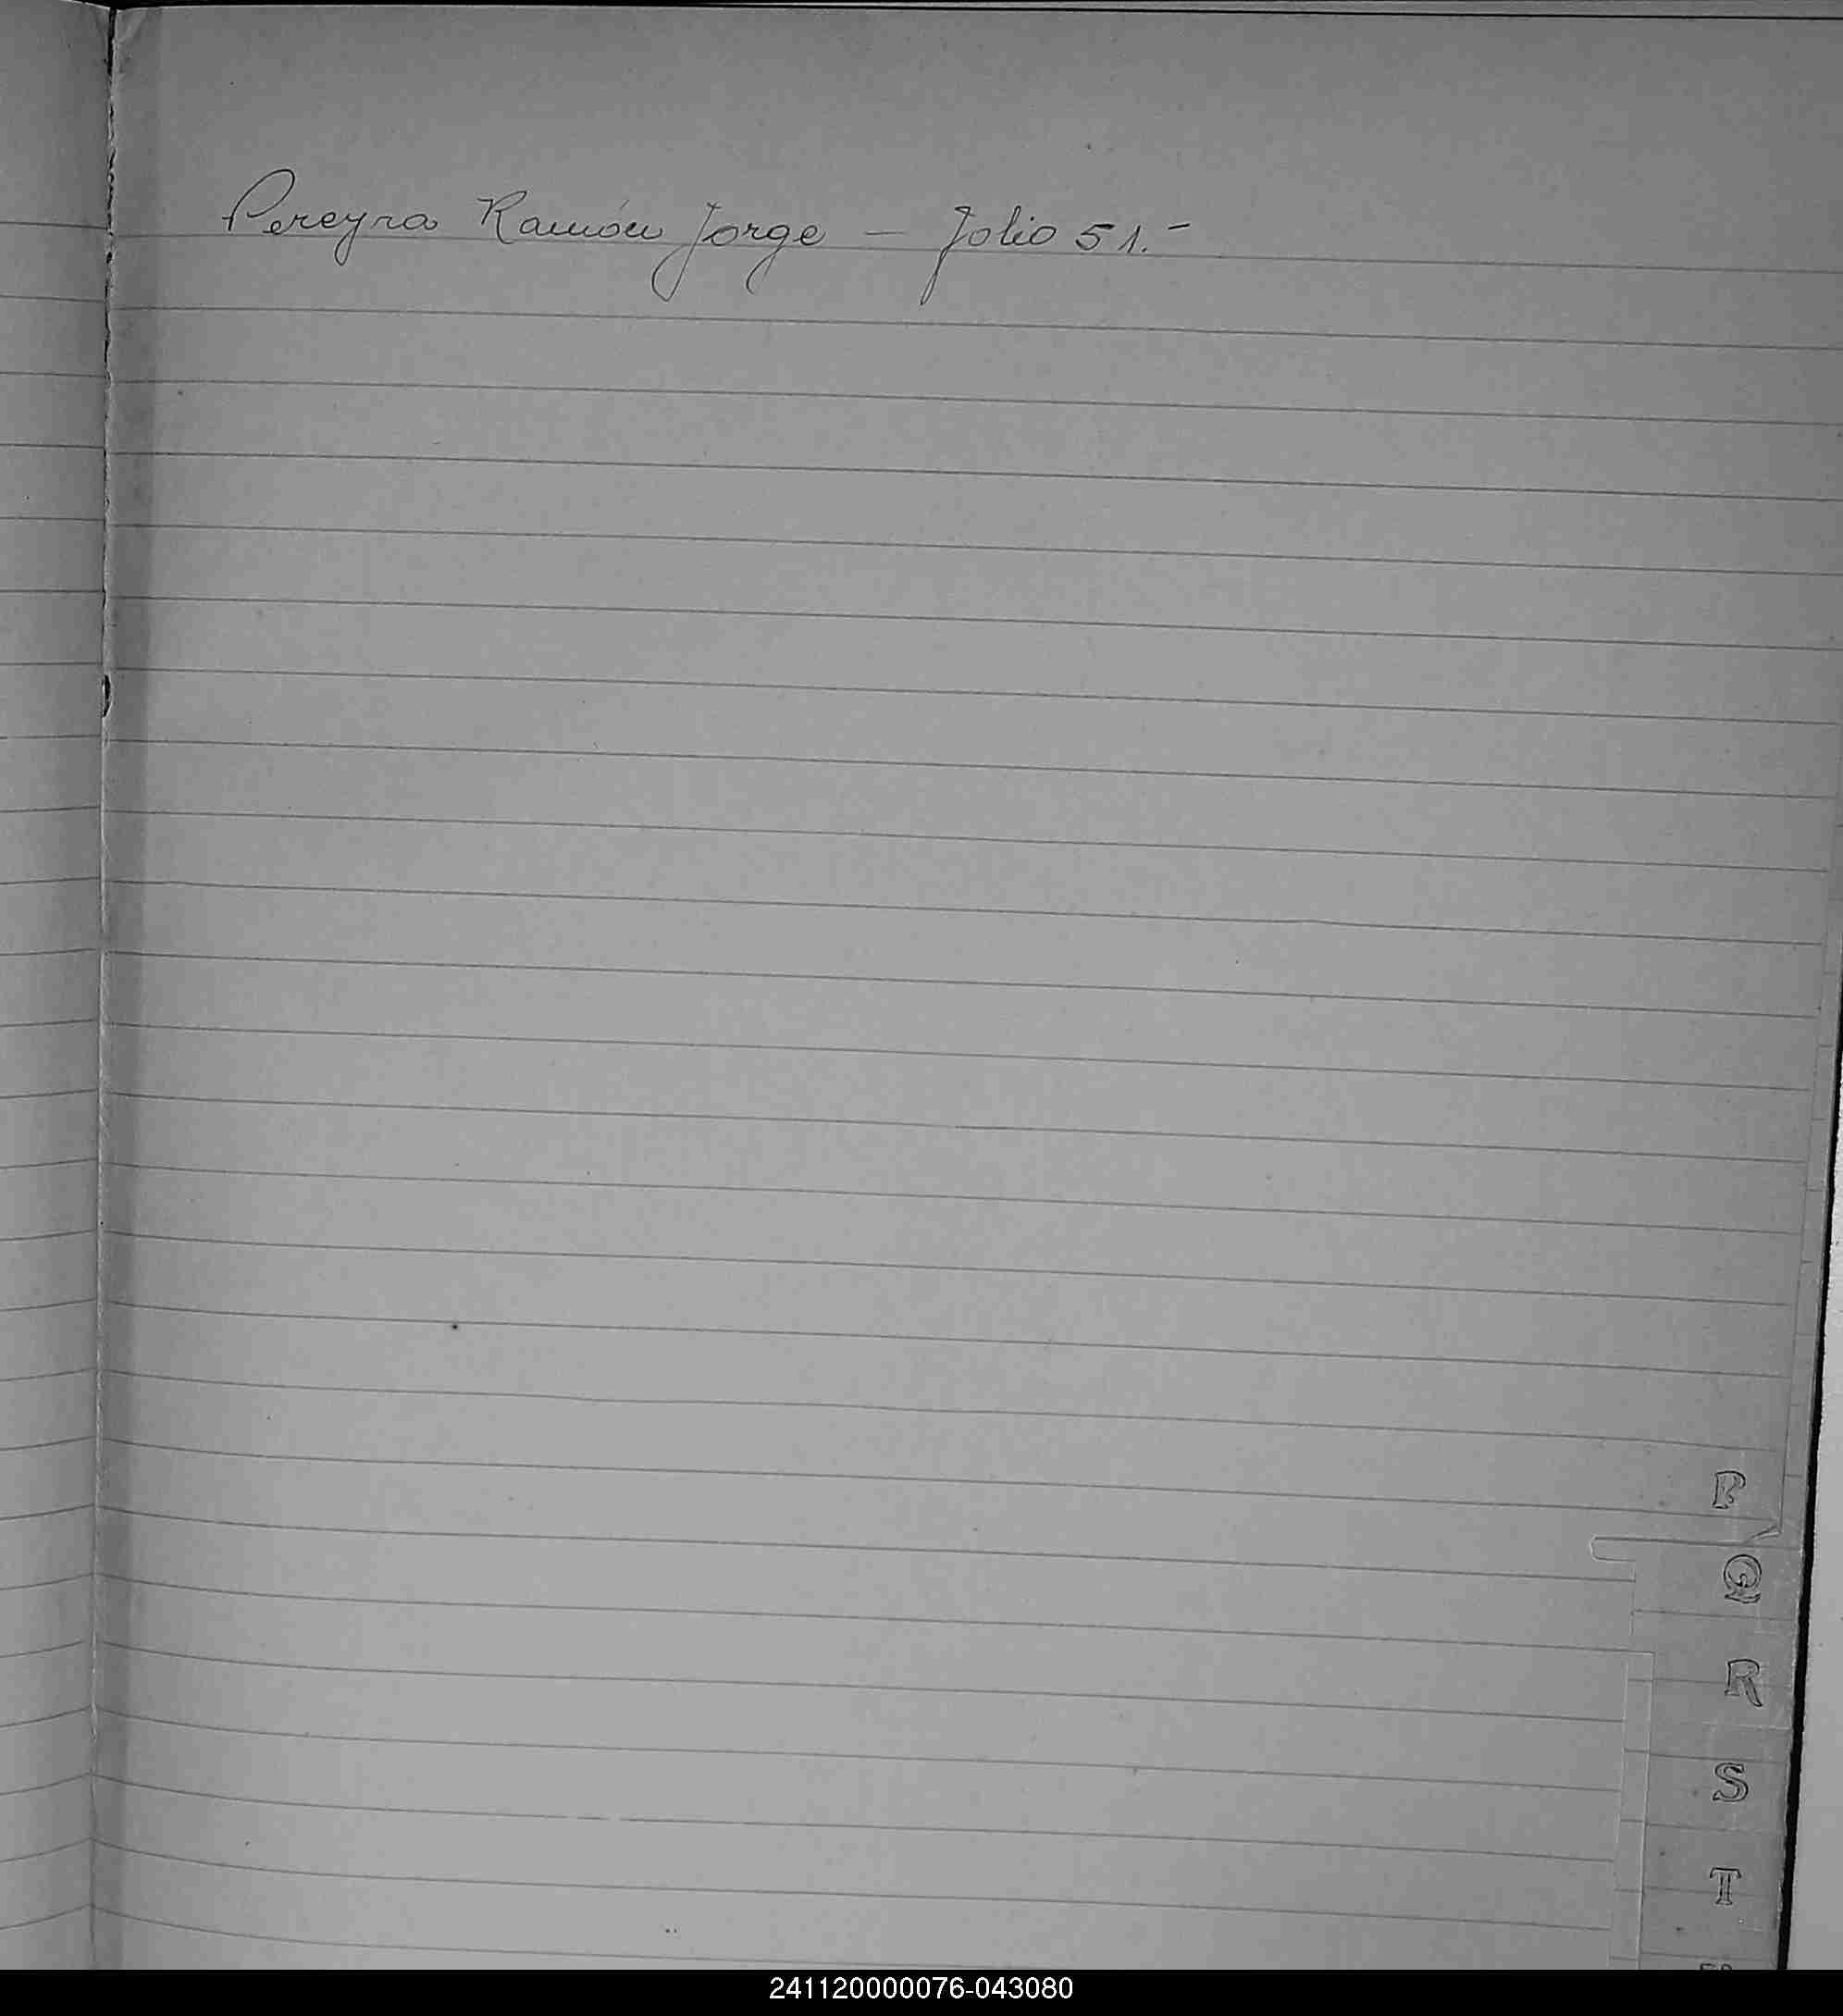 Pereyra Ramón Jorge — Folio 51.-
P
Q
R
S
T
241120000076-043080